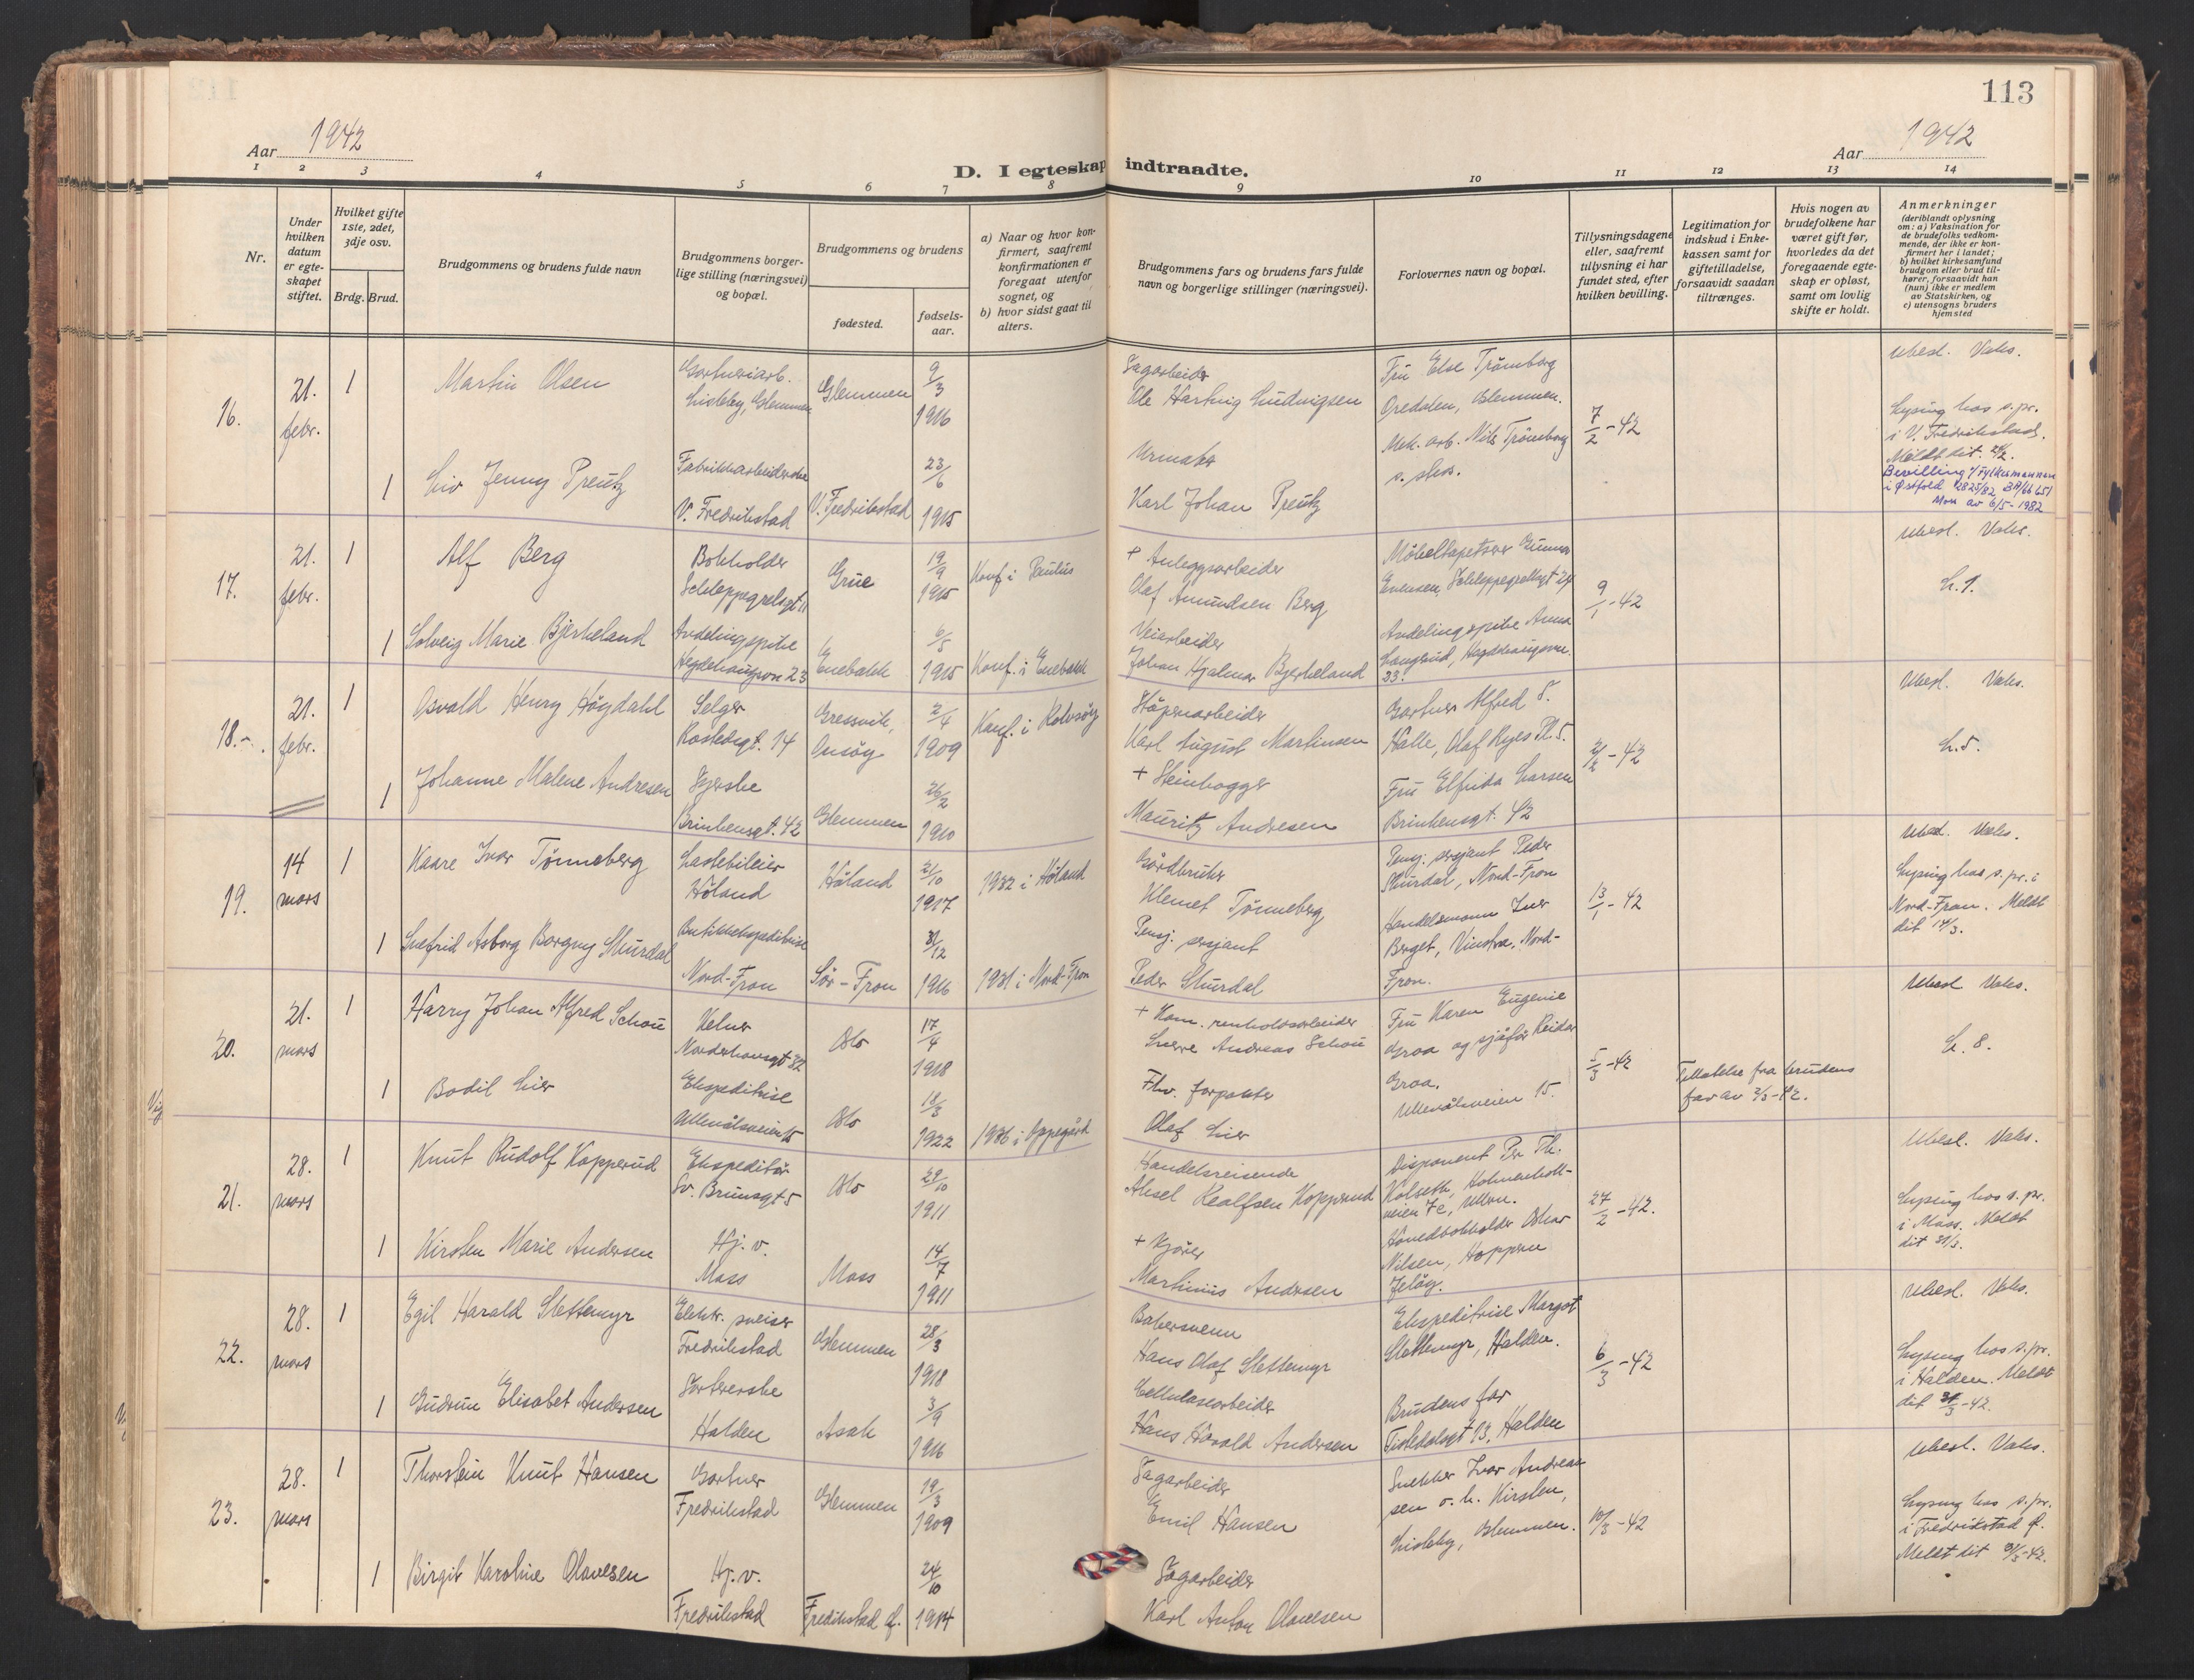 113
Aar 1942
D. I egteskap indtraadte.
Aar 1942
1 2 3 4 5 6 7 8 9 10 11 12 13 14
Nr.
Under hvilken datum er egteskapet stiftet.
Hvilket gifte 1ste, 2det, 3dje osv.
Brdg. Brud.
Brudgommens og brudens fulde navn
Brudgommens borgerlige stilling (næringsvei) og bopæl.
Brudgommens og brudens
fødested.
fødselsaar.
a) Naar og hvor konfirmert, saafremt konfirmationen er foregaat utenfor sognet, og
b) hvor sidst gaat til alters.
Brudgommens fars og brudens fars fulde navn og borgerlige stillinger (næringsvei).
Forlovernes navn og bopæl.
Tillysningsdagene eller, saafremt tillysning ei har fundet sted, efter hvilken bevilling.
Legitimation for indskud i Enkekassen samt for giftetilladelse, forsaavidt saadan tiltrænges.
Hvis nogen av brudefolkene har været gift før, hvorledes da det foregaaende egteskap er opløst, samt om lovlig skifte er holdt.
Anmerkninger
(deriblandt oplysning om: a) Vaksination for de brudefolks vedkommende, der ikke er konfirmert her i landet;
b) hvilket kirkesamfund brudgom eller brud tilhører, forsaavidt han (hun) ikke er medlem av Statskirken, og
c) utensogns bruders hjemsted
16. 21. febr. 1 Martin Olsen
Gartneriarb. Lisleby, Glemmen
Glemmen 9/3 1916
Sagarbeider
Ole Hartvig Ludvigsen
Fru Else Trømborg
Oredalen, Glemmen.
7/2-42
Ubesl. Vaks.
Lysing hos s.pr.
i V. Fredrikstad.
Meldt dit
Bevilling v/Fylkesmannen
i Østfold
av 6/5-1982
1 Liv Jenny Preutz
Fabrikkarbeiderske
V. Fredrikstad
V. Fredrikstad 23/6 1915
Urmaker
Karl Johan Preutz
Mek. arb. Nils Trømborg
s. sted.
17. 21. febr. 1 Alf Berg
Bokholder
Schleppegrelsgt 11
Grue 19/9 1915
Konf. i Paulus
+ Anleggsarbeider
Olaf Amundsen Berg
Møbeltapetserer Gunnar
Evensen, Schleppegrellsgt 24
9/1-42
Ubesl. Vaks.
L. 1.
1 Solveig Marie Bjerkeland
Avdelingspike
Hegdehaugsvn 23
Enebakk 6/5 1915
Konf. i Enebakk
Veiarbeider
Johan Hjalmar Bjerkeland
Avdelingspike Anna
Langsrud, Hegdehaugsvn.
23.
18. 21. febr. 1 Osvald Henry Høgdahl
Selger
Rostedsgt. 14
Gressvik, Onsøy 2/4 1909
Konf. i Rolvsøy
Støperiarbeider
Karl August Martinsen
Gartner Alfred S.
Halle, Olaf Ryes Pl. 5.
2/2-42
Ubesl. Vaks.
L. 5.
1 Johanne Malene Andresen
Syerske
Brinkensgt. 42
Glemmen 26/2 1910
+ Steinhogger
Mauritz Andresen
Fru Elfrida Larsen
Brinkensgt. 42
19. 14 mars 1 Kaare Ivar Tønneberg
Lastebileier
Høland
Høland 2/10 1917
1932 i Høland
Gårdbruker
Klemet Tønneberg
Pensj. sersjant Peder
Skurdal, Nord-Fron
13/1-42
Ubesl. Vaks.
Lysing hos s.pr. i
Nord-Fron. Meldt
dit 14/3.
1 Snefrid Asborg Borgny Skurdal
Butikkekspeditrise
Nord-Fron
Sør-Fron 31/12 1916
1931 i Nord-Fron
Pensj. sersjant
Peder Skurdal
Handelsmann Iver
Berget, Vinstra, Nord-
Fron.
20. 21. mars 1 Harry Johan Alfred Schou
Kelner
Norderhovsgt 32
Oslo 17/4 1918
+ Kom. renholdsarbeider
Sverre Andreas Schou
Fru Karen Eugenie
Groa og sjåfør Reidar
Groa.
Ullevålsveien 15.
5/3-42
Tillatelse fra brudens
far av 2/3-42.
Ubesl Vaks.
L. 8.
1 Bodil Lier
Ekspeditrise
Ullevålsveien 15
Oslo 18/3 1922
1936 i Oppegård
Fhv. forpakter
Olaf Lier
21. 28. mars 1 Knut Rudolf Kopperud
Ekspeditør
Sv. Brunsgt 5
Oslo 29/10 1911
Handelsreisende
Aksel Realfsen Kopperud
Disponent Per Th.
Kolseth, Holmenkoll-
veien 7c, Ullern.
27/2-42.
Ubesl. Vaks.
Lysing hos s.pr.
i Moss. Meldt
dit 31/3.
1 Kirsten Marie Andersen
Hj. v.
Moss
Moss 14/7 1911
+ Kjører
Martinius Andersen
Hovedbokholder Oskar
Nilsen, Hoppern
Jeløy.
22. 28. mars 1 Egil Harald Slettemyr
Elektr. sveiser
Fredrikstad
Glemmen 28/3 1918
Bakersvenn
Hans Olaf Slettemyr
Ekspeditrise Margot
Slettemyr, Halden.
6/3-42
Ubesl. Vaks.
Lysing hos s.pr.
i Halden. Meldt
dit 31/3-42.
1 Gudrun Elisabet Andersen
Sortererske
Halden
Asak 3/9 1916
Cellulosearbeider
Hans Harald Andersen
Brudens far
Tistedalsgt 13, Halden
23. 28. mars 1 Thorstein Knut Hansen
Gartner
Fredrikstad
Glemmen 19/3 1909
Sagarbeider
Emil Hansen
Snekker Ivar Andreas-
sen o. h. Kirsten,
Lisleby, Glemmen.
10/3-42
Ubesl. Vaks.
Lysing hos s.pr.
i Fredrikstad Ø.
Meldt dit 31/3-42.
1 Birgit Karoline Olavesen
Hj. v.
Fredrikstad
Fredrikstad Ø. 24/10 1914
Sagarbeider
Karl Anton Olavesen